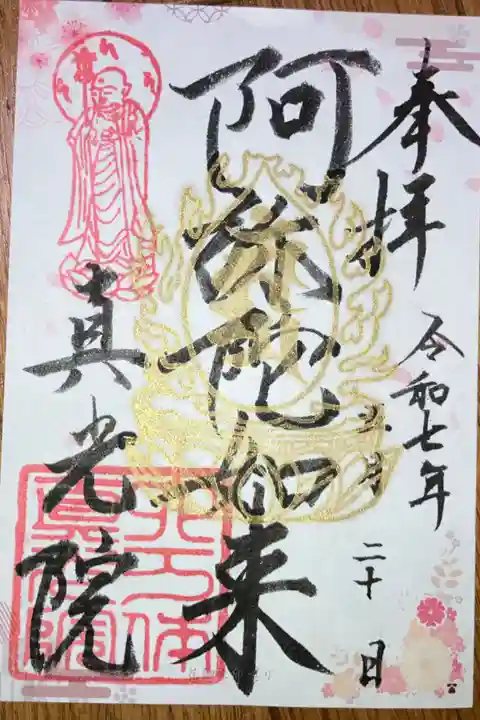 奉拝
令和七年
二十日
阿弥陀如来
真光院